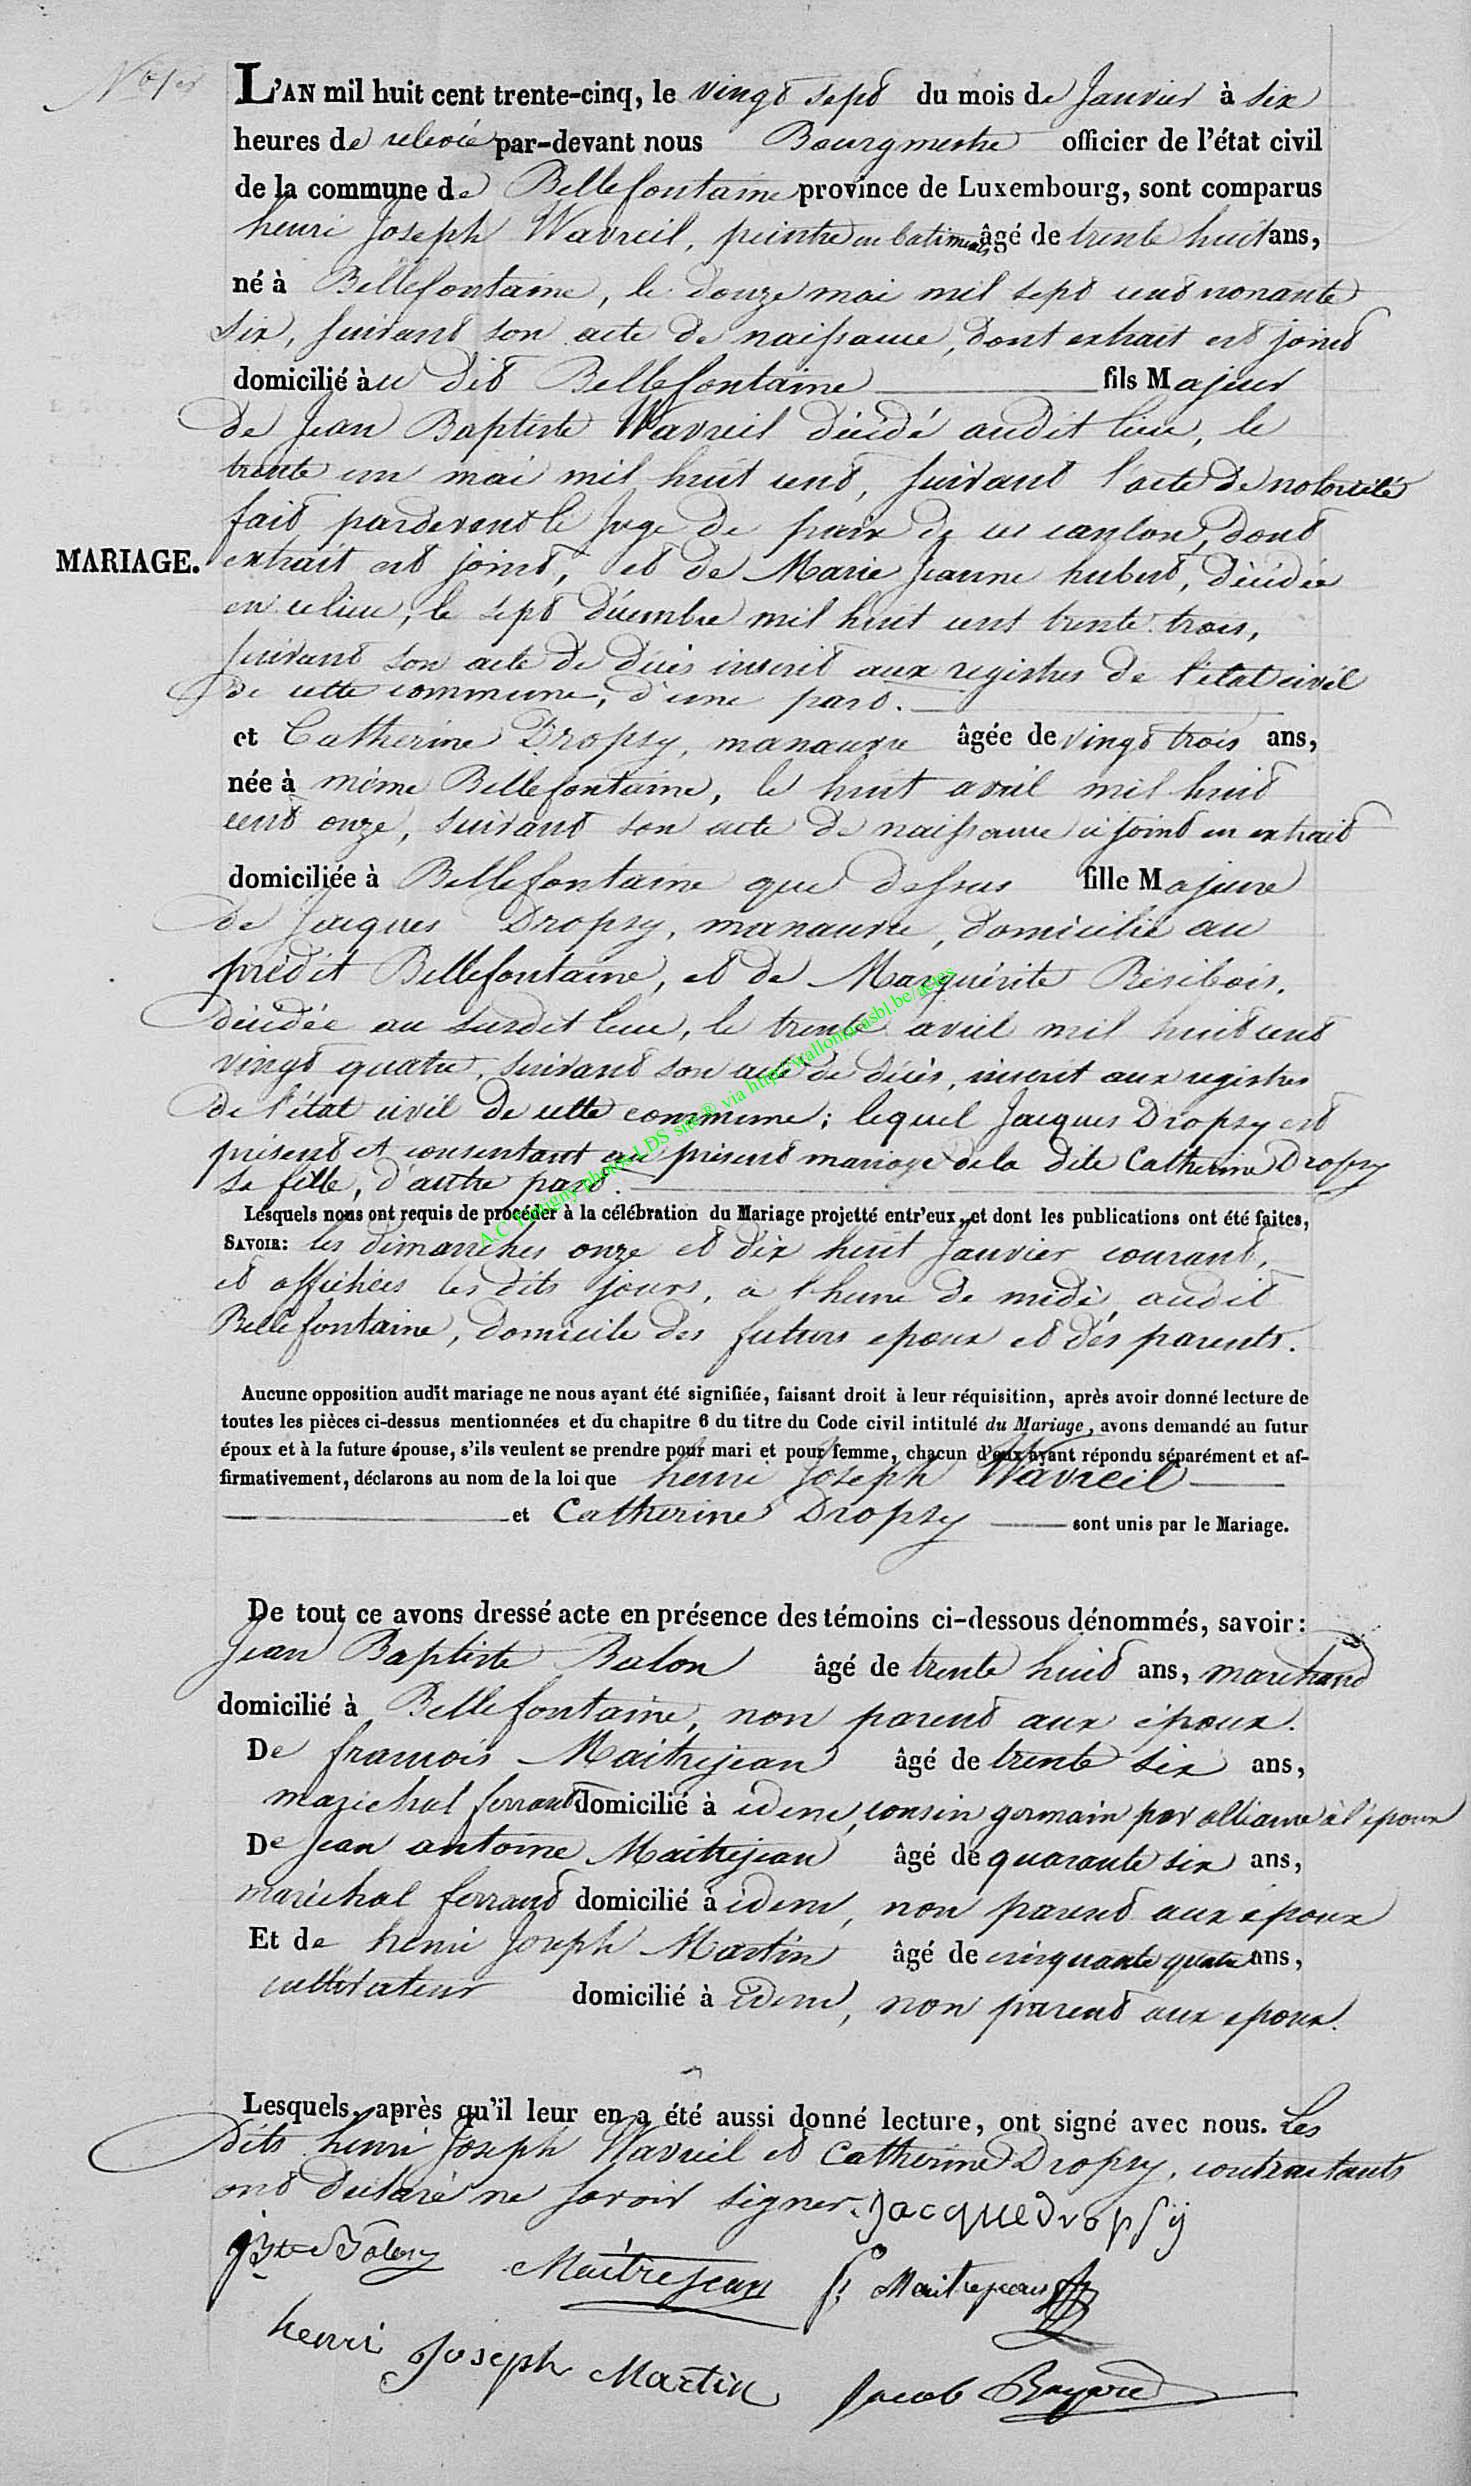 L'AN mil huit cent trente-cinq, le vingt sept du mois de Janvier à six
heures de relevée par-devant nous Bourgmestre officier de l'état civil
de la commune de Bellefontaine province de Luxembourg, sont comparus
henri Joseph Wavreil, peintre en batiments âgé de trente huit ans,
né à Bellefontaine, le douze mai mil sept cent nonante
six, suivant son acte de naissance, dont extrait est joint
domicilié au dit Bellefontaine fils Majeur
de Jean Baptiste Wavreil décédé audit lieu, le
trente un mai mil huit cent, suivant l'acte de notoriété
fait pardevant le Juge de paix de ce canton, dont
MARIAGE. extrait est joint, et de Marie Jeanne hubert, décédée
en ce lieu, le sept décembre mil huit cent trente trois,
suivant son acte de décès inscrit aux registres de l'état civil
de cette commune, d'une part.
et Catherine Dropsy, manœuvre âgée de vingt trois ans,
née à même Bellefontaine, le huit avril mil huit
cent onze, suivant son acte de naissance ci joint en extrait
domiciliée à Bellefontaine que dessus fille Majeure
de Jacques Dropsy, manœuvre, domicilié au
prédit Bellefontaine, et de Marguérite Résibois,
décédée au susdit lieu, le trente avril mil huit cent
vingt quatre, suivant son acte de décès, inscrit aux registres
de l'état civil de cette commune; lequel Jacques Dropsy est
présent et consentant au présent mariage de la dite Catherine Dropsy
sa fille, d'autre part.
A.C. Tintigny photos LDS site® via http://wallonia-asbl.be/actes
Lesquels nous ont requis de procéder à la célébration du Mariage projetté entr'eux, et dont les publications ont été faites,
SAVOIR: les dimanches onze et dix huit Janvier courant,
et affichées les dits jours, à l'heure de midi, audit
Bellefontaine, domicile des futurs epoux et des parents.
Aucune opposition audit mariage ne nous ayant été signifiée, faisant droit à leur réquisition, après avoir donné lecture de
toutes les pièces ci-dessus mentionnées et du chapitre 6 du titre du Code civil intitulé du Mariage, avons demandé au futur
époux et à la future épouse, s'ils veulent se prendre pour mari et pour femme, chacun d'eux ayant répondu séparément et af-
firmativement, déclarons au nom de la loi que henri Joseph Wavreil
et Catherine Dropsy sont unis par le Mariage.
De tout ce avons dressé acte en présence des témoins ci-dessous dénommés, savoir:
Jean Baptiste Balon âgé de trente huit ans, marchand
domicilié à Bellefontaine, non parent aux époux.
De francois Maitrejean âgé de trente six ans,
maréchal ferrant domicilié à idem, cousin germain par alliance à l'époux
De Jean antoine Maitrejean âgé de quarante six ans,
maréchal ferrant domicilié à idem, non parent aux epoux
Et de henri Joseph Martin âgé de cinquante quatre ans,
cultivateur domicilié à idem, non parent aux epoux.
Lesquels, après qu'il leur en a été aussi donné lecture, ont signé avec nous. Les
dits henri Joseph Wavreil et Catherine Dropsy, contractants
ont déclaré ne savoir signer. Jacque Dropsÿ
Maîtrejean f: Maitrejean
henri Joseph Martin Jacob